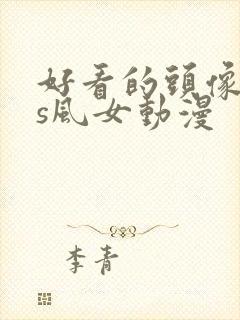 好看的頭像
s風女動漫
李青